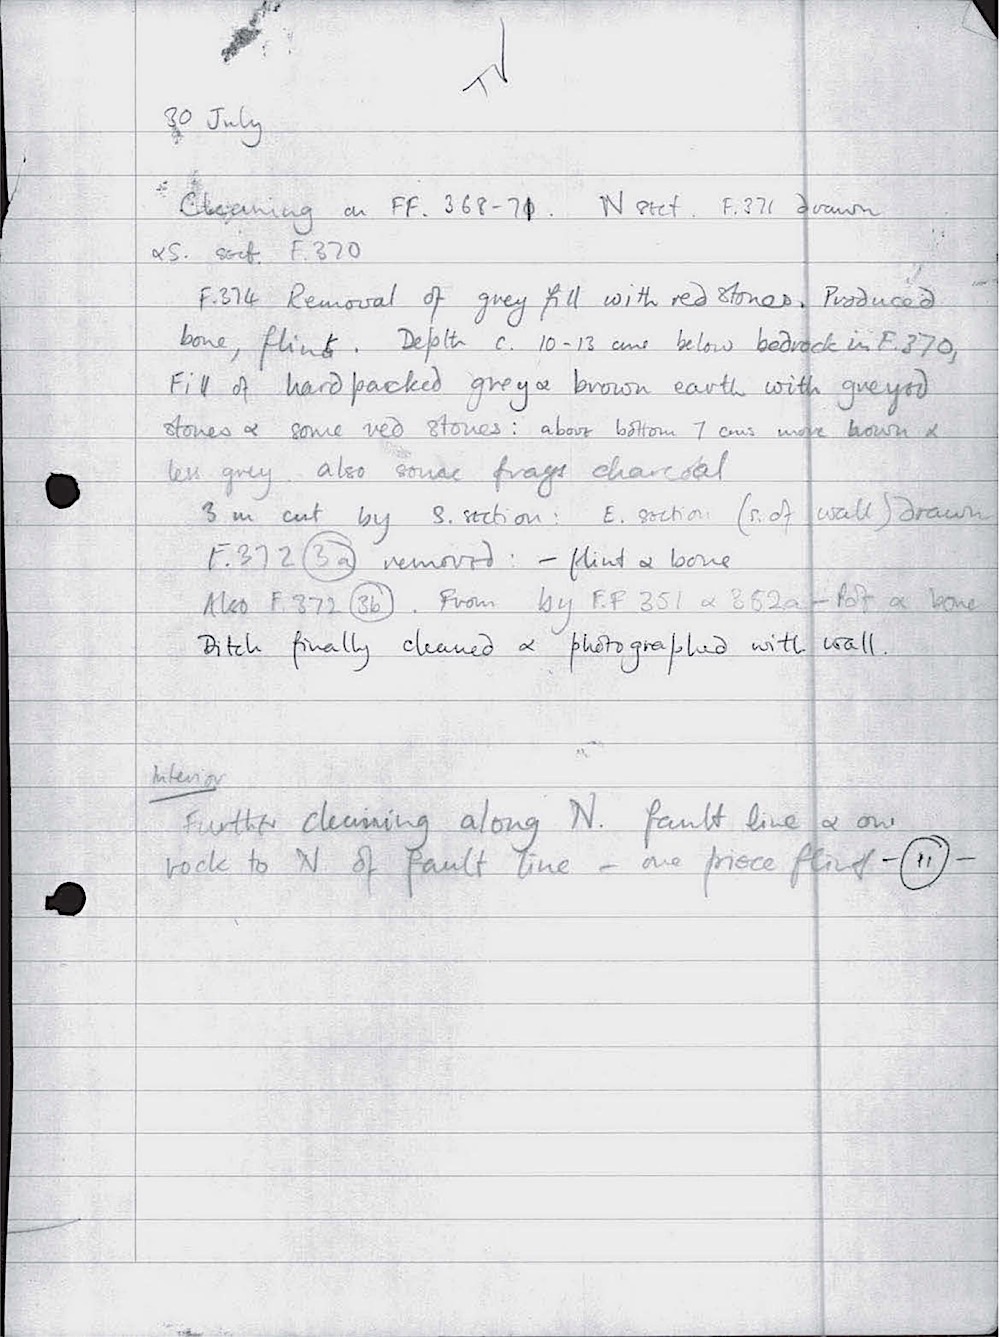 30 July
Cleaning on FF. 368-71. N sect. F.371 drawn
& S. sect. F.370
F.374 Removal of grey fill with red stones. Produced
bone, flint. Depth c. 10-13 cms below bedrock in F.370,
Fill of hard packed grey & brown earth with
stones & some red stones: above bottom 7 cms more brown &
less grey. also some frags charcoal
3 m cut by S. section: E. section (S. of wall) drawn
F.372 (3a) removed: - flint & bone
Also F.372 (3b). From by F.F 351 & 352a - Pot & bone
Ditch finally cleaned & photographed with wall.
Interior
Further cleaning along N. fault line & on
rock to N of fault line - one piece flint - (11) -